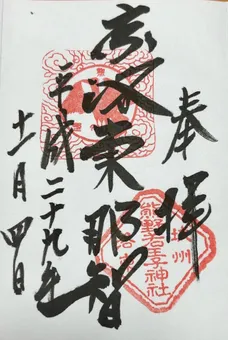 奉拝
京洛東那智
平成二十九年
十一月四日
熊野若王子神社